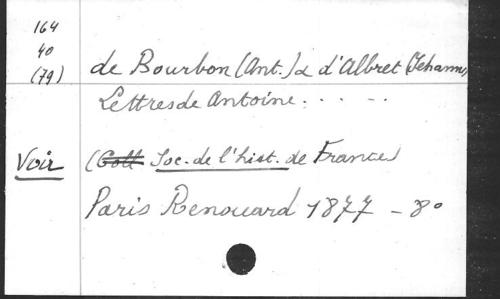 164
40
(79)
de Bourbon (Ant.) & d'Albret (Jehanne)
Lettres de Antoine. . . . .
Voir (Coll Soc. de l'hist. de France)
Paris Renouard 1877 - 8°